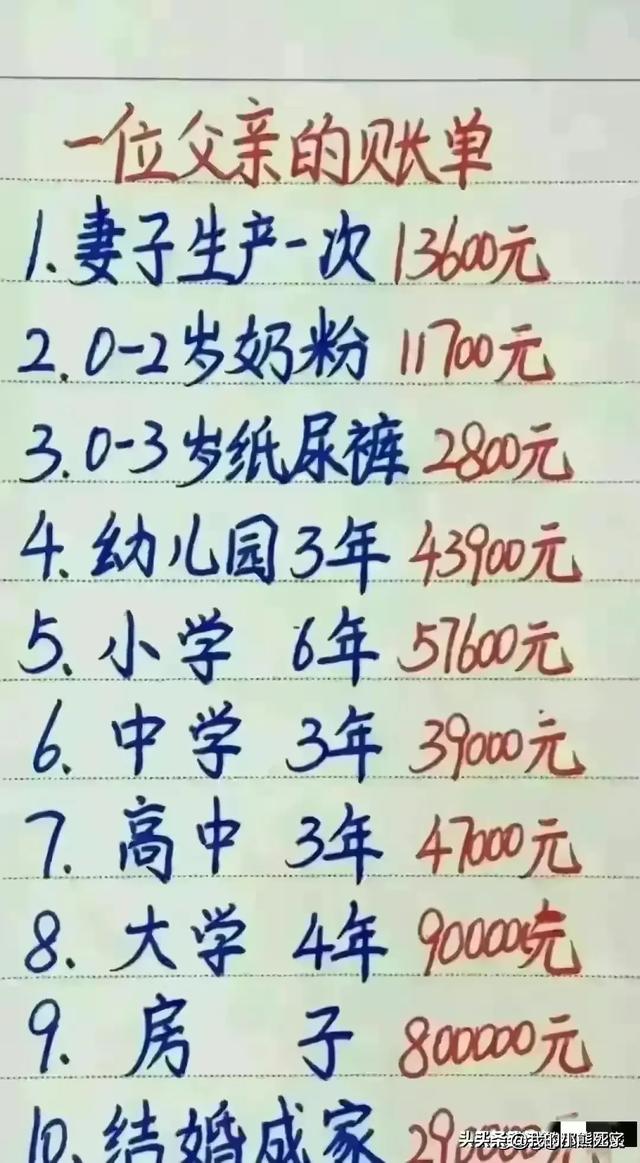 一位父亲的账单
1.妻子生产一次 13600元
2.0-2岁奶粉 11700元
3.0-3岁纸尿裤 2800元
4.幼儿园3年 43900元
5.小学 6年 57600元
6.中学 3年 39000元
7.高中 3年 47000元
8.大学 4年 90000元
9.房 子 800000元
10.结婚成家
头条